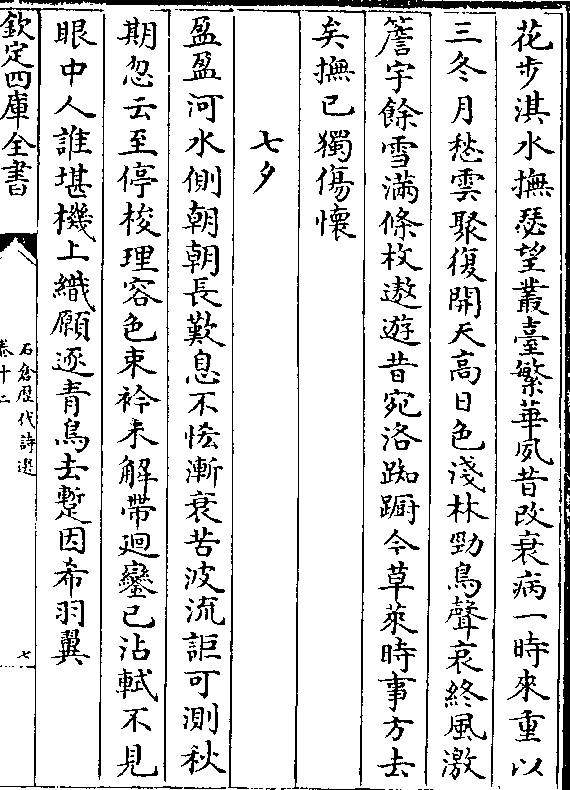 花步淇水撫瑟望叢臺繁華夙昔改衰病一時來重以
三冬月愁雲聚復開天高日色淺林勁鳥聲哀終風激
簷宇餘雪滿條枚遨遊昔宛洛踟蹰今草萊時事方去
矣撫已獨傷懷
七夕
盈盈河水側朝朝長歎息不惏漸衰苦波流詎可測秋
期忽云至停梭理容色束衿未解帶廻鑾已沾軾不見
眼中人誰堪機上織願逐青鳥去蹔因希羽翼
欽定四庫全書
石倉歷代詩選
卷十二
七